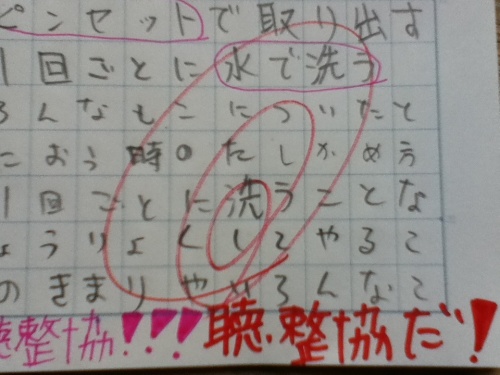 ピンセットで取り出す
1回ごとに水で洗う
ろんなもこについたと
におう時のたしかめ方
1回ごとに洗うことな
ょうりょくしてやるこ
のきまりやいろんなこ
聴整協!!! 聴整協だ!